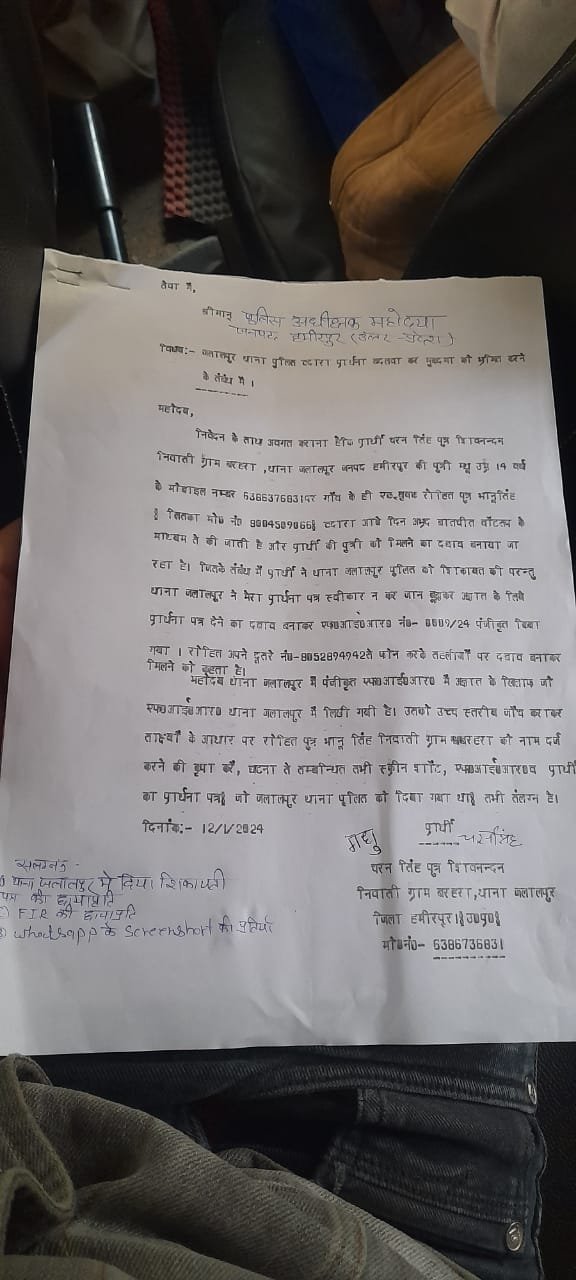 सेवा में,
श्रीमान् पुलिस अधीक्षक महोदया
जनपद हमीरपुर (उत्तर-प्रदेश)
विषय:- जलालपुर थाना पुलिस द्वारा प्रार्थना बदलवा कर मुकदमा को भ्रमित करने
के संबंध में ।
महोदय,
निवेदन के साथ अवगत कराना है कि प्रार्थी चरन सिंह पुत्र शिवनन्दन
निवासी ग्राम बरहरा ,थाना जलालपुर जनपद हमीरपुर की पुत्री उम्र 14 वर्ष
के मोबाइल नम्बर 6386376831पर गाँव के ही रोहित पुत्र भानू सिंह
जिसका मो0 नं0 8004509066 द्वारा आये दिन अभद्र बातचीत वॉटसप के
माध्यम से की जाती है और प्रार्थी की पुत्री को मिलने का दबाव बनाया जा
रहा है। जिसके संबंध में प्रार्थी ने थाना जलालपुर पुलिस को शिकायत की परन्तु
थाना जलालपुर ने मेरा प्रार्थना पत्र स्वीकार न कर जान बूझकर अज्ञात के लिये
प्रार्थना पत्र देने का दबाव बनाकर एफ0आई0आर0 नं0- 0009/24 पंजीकृत किया
गया । रोहित अपने दूसरे नं0-8052894942से फोन करके सहेलियों पर दबाव बनाकर
मिलने को कहता है।
महोदय थाना जलालपुर में पंजीकृत एफ0आई0आर0 में अज्ञात के खिलाफ जो
एफ0आई0आर0 थाना जलालपुर में लिखी गयी है। उसको उच्च स्तरीय जाँच कराकर
साक्ष्यों के आधार पर रोहित पुत्र भानू सिंह निवासी ग्राम बरहरा को नाम दर्ज
करने की कृपा करें, घटना से सम्बन्धित सभी स्क्रीन शॉट, एफ0आई0आर0व प्रार्थी
का प्रार्थना पत्र जो जलालपुर थाना पुलिस को दिया गया था सभी संलग्न है।
दिनांक:- 12/1/2024
प्रार्थी
मधु चरनसिंह
चरन सिंह पुत्र शिवनन्दन
निवासी ग्राम बरहरा,थाना जलालपुर
जिला हमीरपुर(उ0प्र0)
मो0नं0- 6386736831
संलग्नक-
थाना जलालपुर में दिया शिकायती
पत्र की छायाप्रति
FIR की छायाप्रति
whatsapp के screenshort की प्रतियाँ